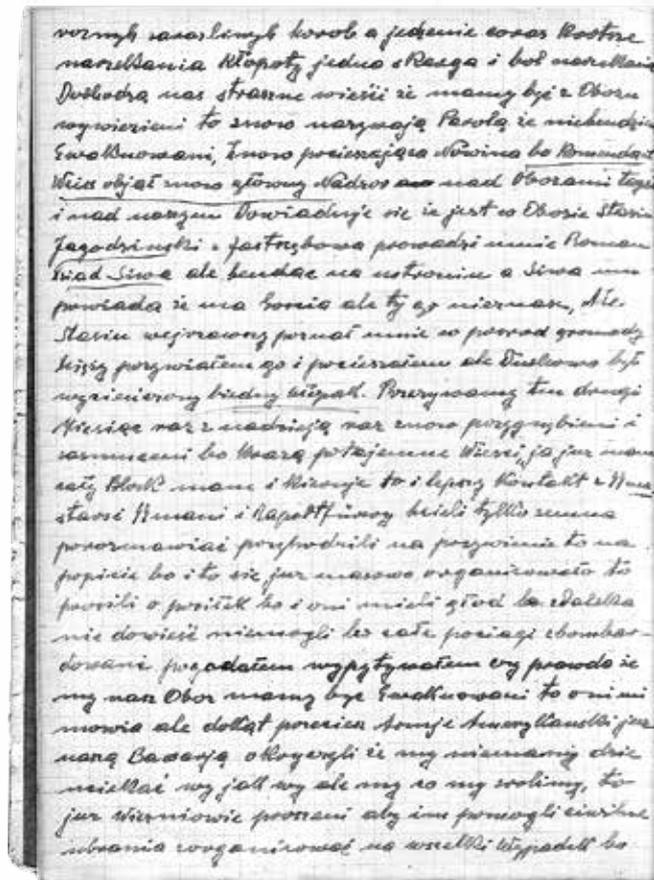 roznyh zarazliwyh horob a jedzenie coras Krotsze
narzekania Kłopoty jedna skarga i bol narzekanie
Dohodzą nas straszne wieści że mamy być z Obozu
wywiezieni to znow nazywają Parolą że niebendzie
Ewakuowani, Znowu pocieszająca Nowina bo Komendant
Weiss objął znow głowny Nadzor nad Obozami
i nad naszym Dowiaduje sie że jest w Obozie Stasiu
Jagodzinski z Jastrzybowa prowadzi mnie Roman
Siwa ale bendąc na ustroniu a Siwa mu
powiada że ma Gościa ale ty go nieznasz, Ale
Stasiu poznał mnie w posrod gromady
przywiałem go i pocieszałem ale Duhowo był
wyzieniczony biedny hłopak. Przezywamy ten drugi
Miesiąc raz z nadzieją raz znow przygnybieni i
zasmuceni bo Krązą potajemne Wieści, ja juz mam
cały Block mam i Kieruje to i lepszy Kontakt z
starsi i Raportfirowy hcieli tylko zemna
porozmawiać przyhodzili na to na
popicie bo i to sie juz masowo organizowało to
prosili o posiłek bo i oni mieli głod bo zdaleka
nie dowieść niemogli bo całe pociągi zbombar-
dowani. pogadałem wypytywałem czy prawda że
my nasz Oboz mamy być Ewakuowani to oni mi
mowia ale dokąt przeciez Armje Amerykanski juz
naszą Bawarją okrązyli że my niemamy dzie
uciekać wy jak wy ale my co my zrobimy, to
juz Wiezniowie proszeni aby im pomogli ciwilne
ubrania zorganizować na wszelki Wypadek bo